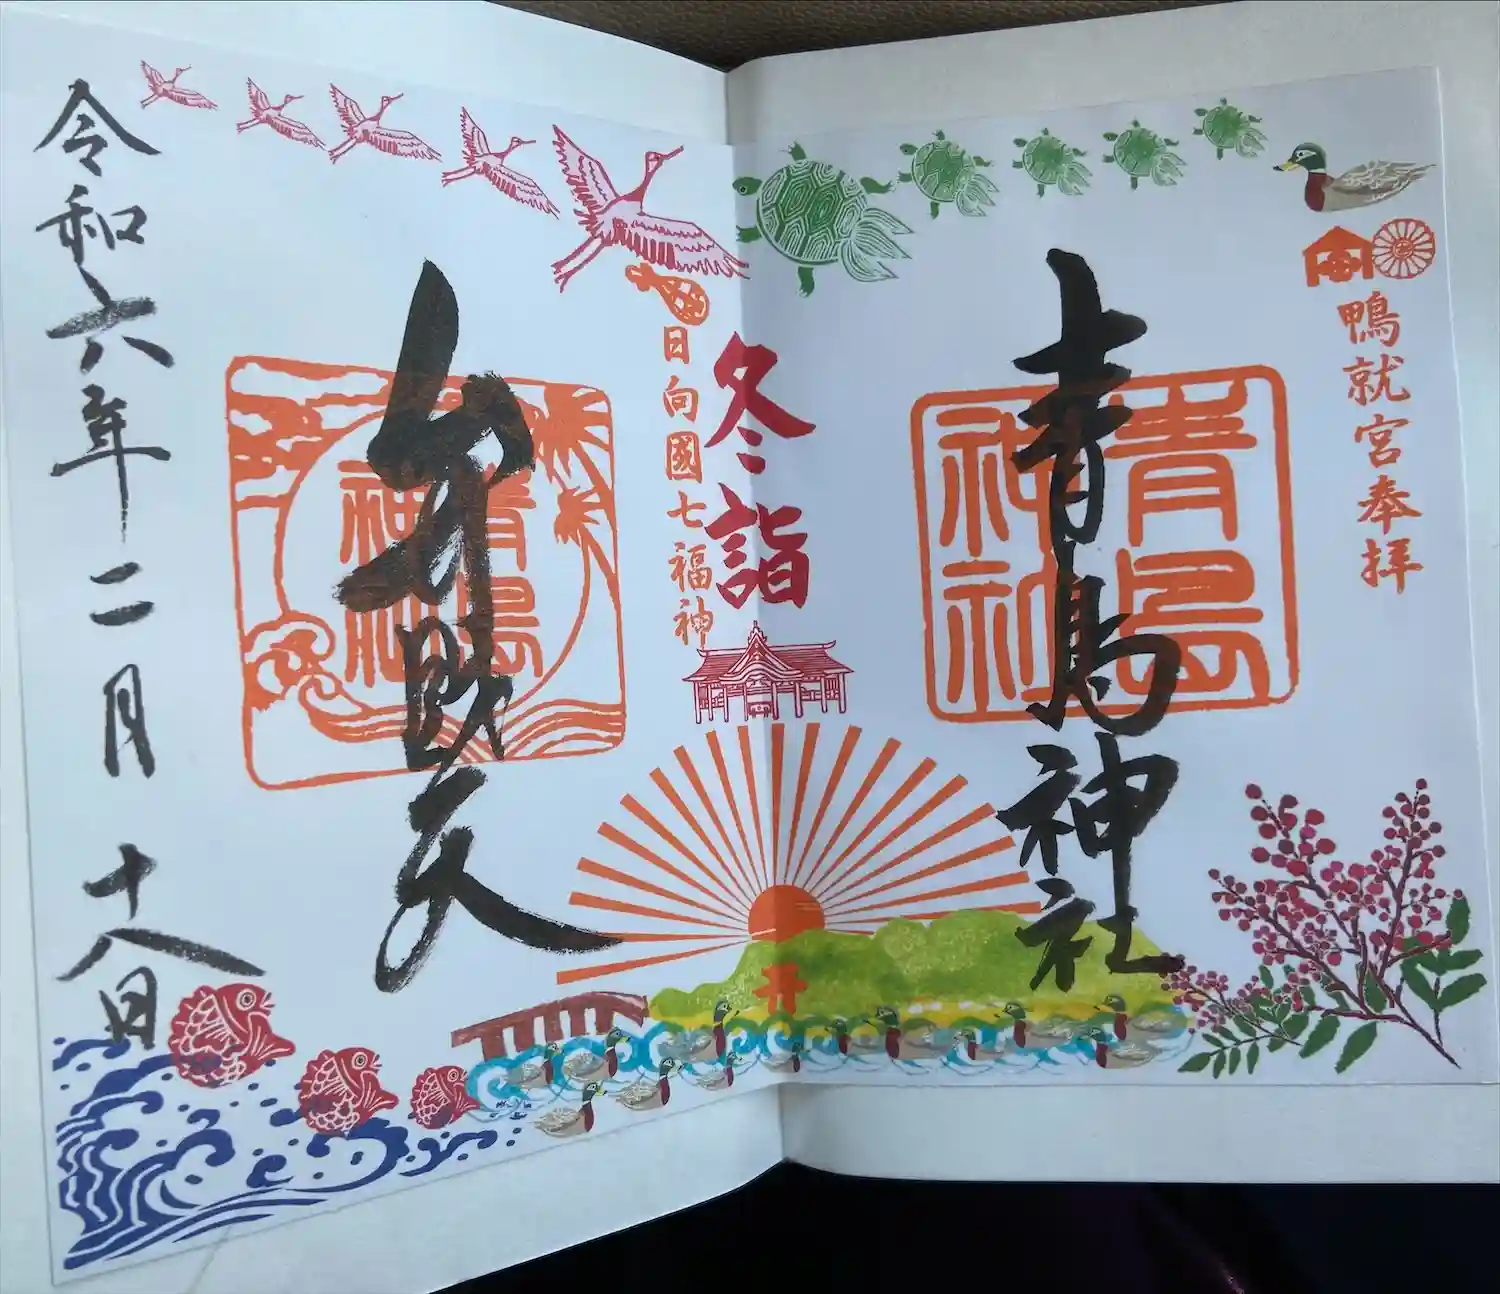 鴨就宮奉拝
青島神社
青島
神社
冬詣
日向國七福神
弁財天
青島
神社
令和六年二月十八日